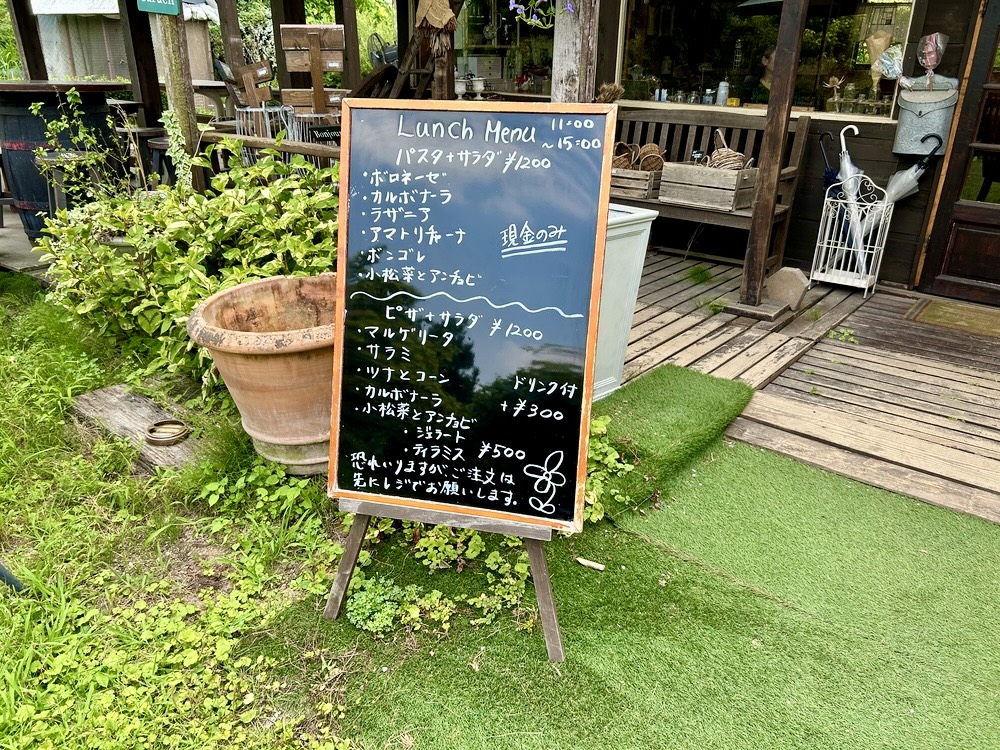 Lunch Menu 11:00
~15:00
パスタ+サラダ ¥1200
・ボロネーゼ
・カルボナーラ
・ラザニア
・アマトリチャーナ
現金のみ
・ボンゴレ
・小松菜とアンチョビ
ピザ+サラダ ¥1200
・マルゲリータ
・サラミ
・ツナとコーン
ドリンク付
・カルボナーラ
+¥300
・小松菜とアンチョビ
・ジェラート
・ティラミス ¥500
恐れいりますが、ご注文は
先にレジでお願いします。
Bonjour